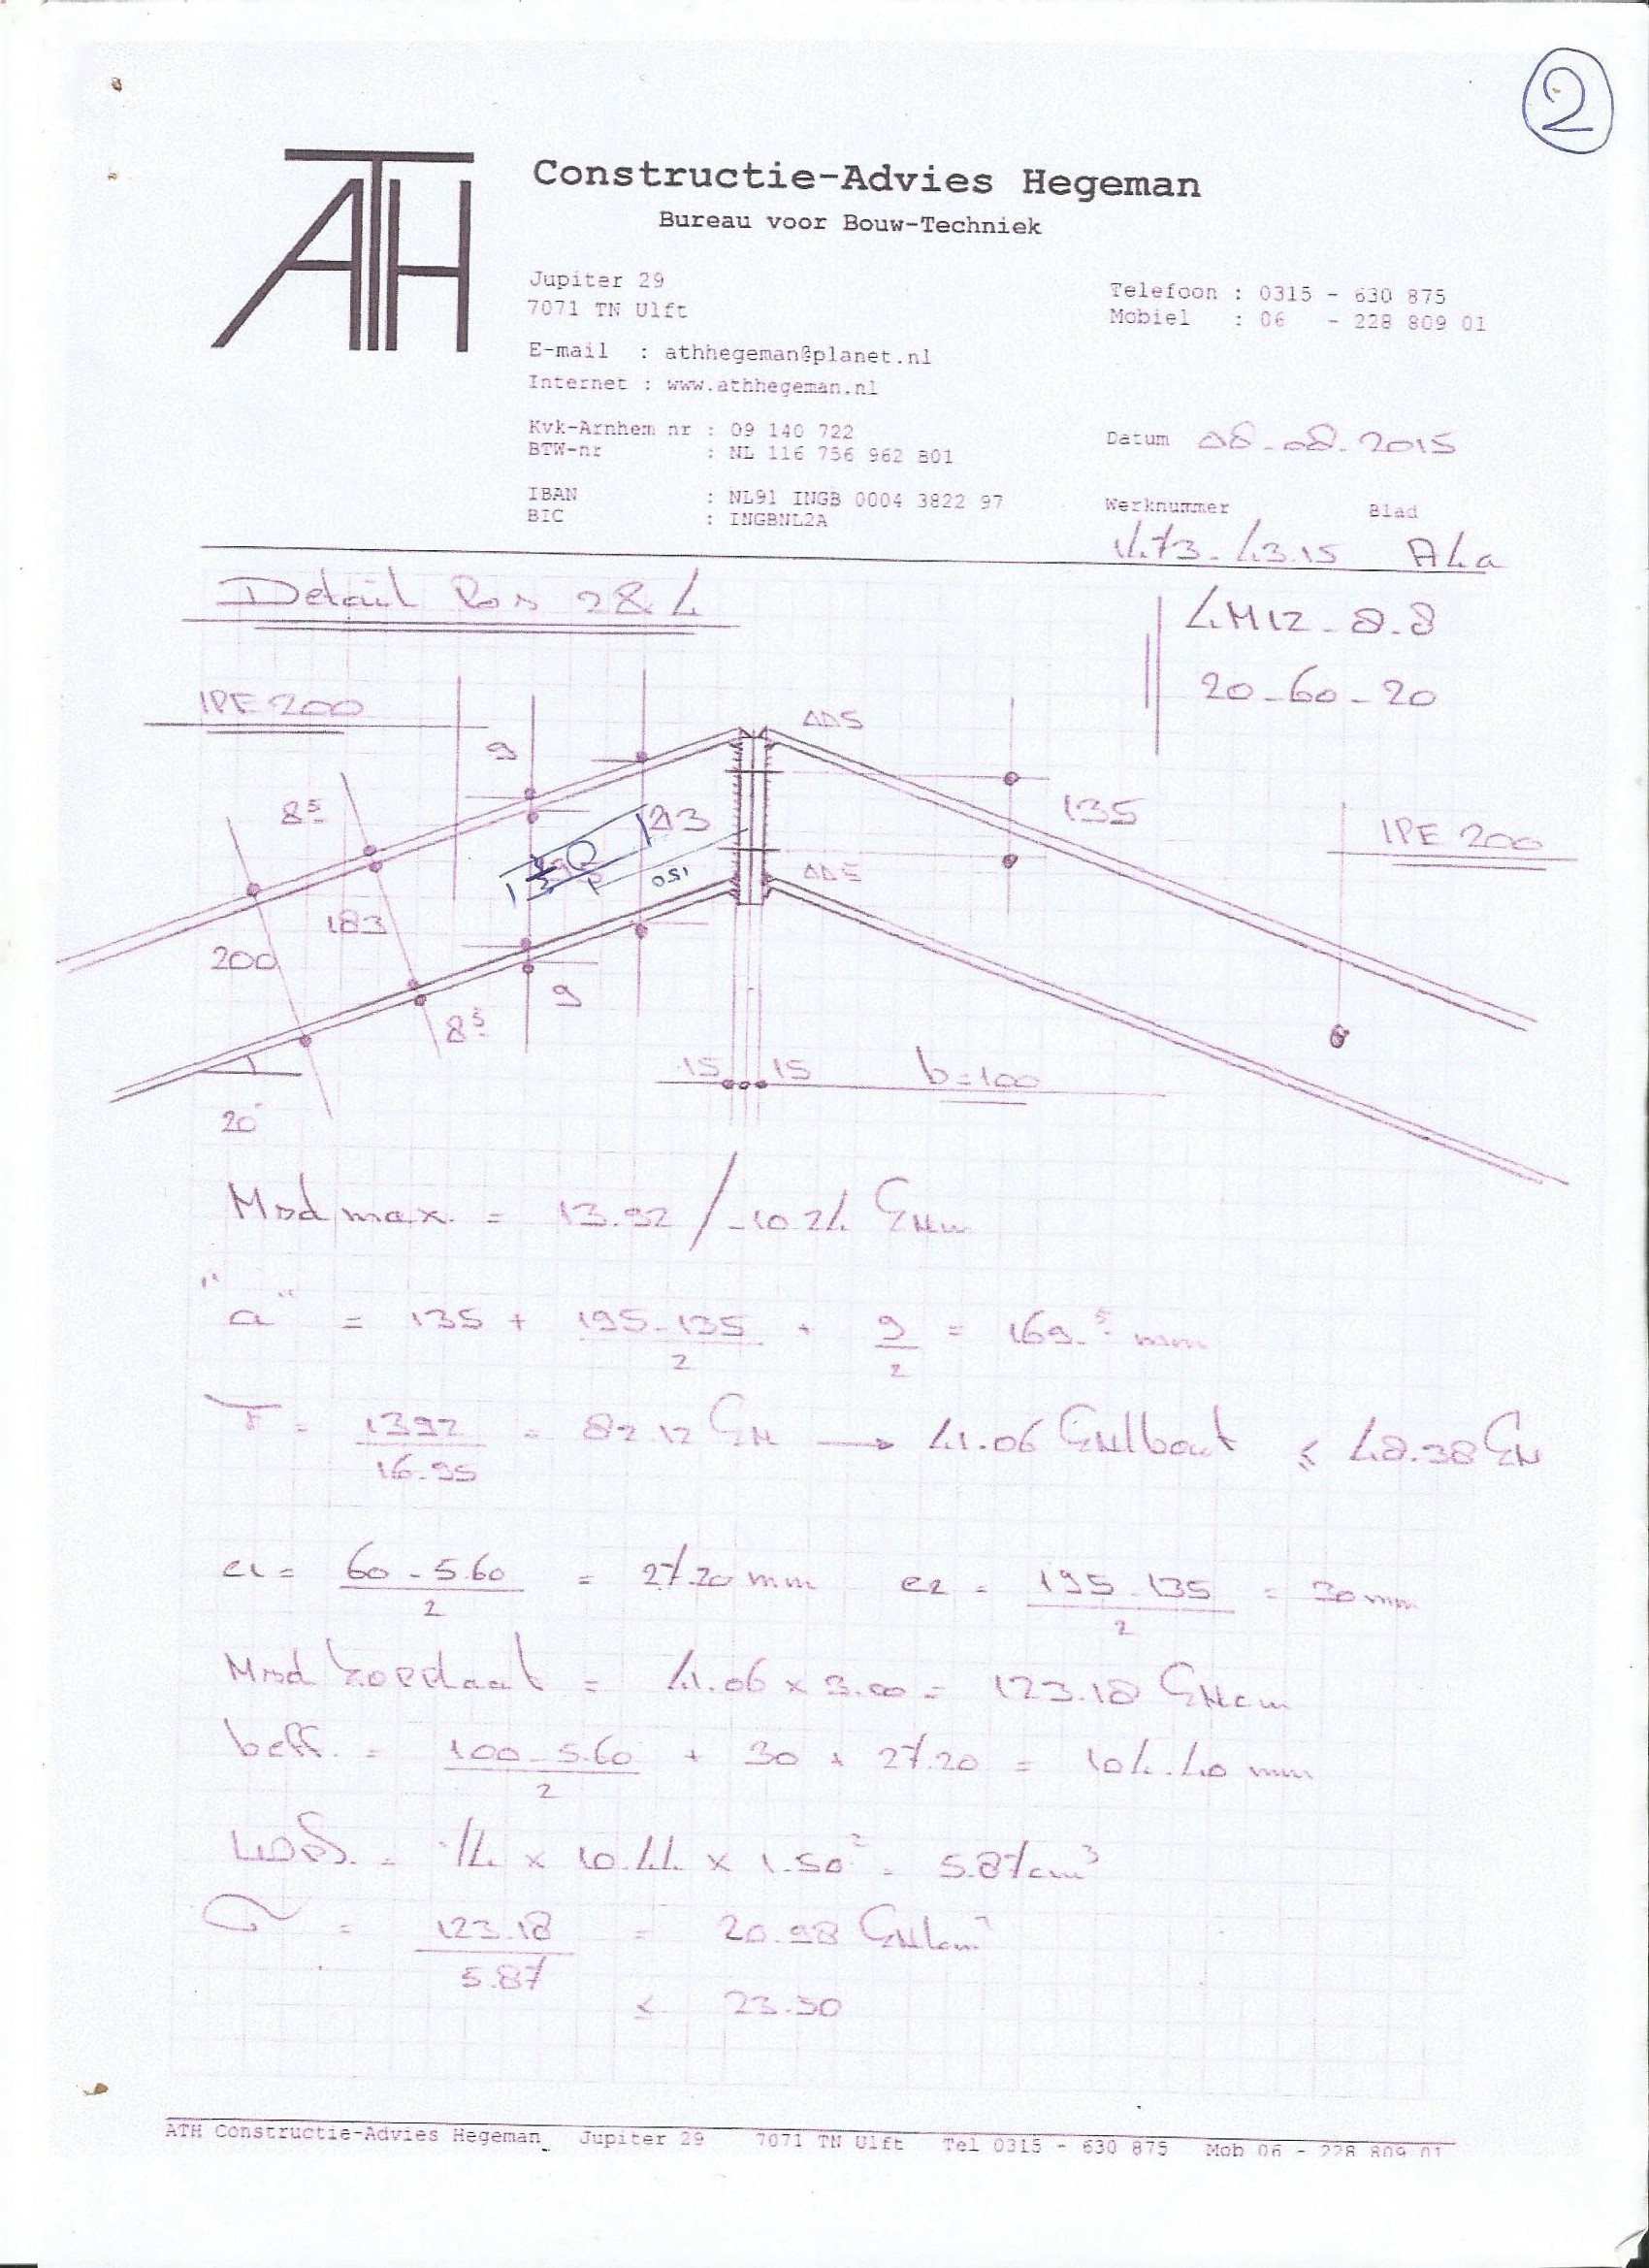 2
ATH
Constructie-Advies Hegeman
Bureau voor Bouw-Techniek
Jupiter 29
7071 TN Ulft
Telefoon : 0315 - 630 875
Mobiel : 06 - 228 809 01
E-mail : athhegeman@planet.nl
Internet : www.athhegeman.nl
Kvk-Arnhem nr : 09 140 722
BTW-nr : NL 116 756 962 B01
Datum 08-08-2015
IBAN : NL91 INGB 0004 3822 97
BIC : INGBNL2A
Werknummer Blad
1473-43.15 A4a
Detail Pos 2 & 4
4M12-8.8
20-60-20
IPE 200
9
ΔΔ5
8⁵
135
IPE 200
150
ΔΔ5
183
200
9
8⁵
15 15 b=100
20°
Msd max. = 13.92 / -10.24 kNm
"a" = 135 + (195-135)/2 + 9/2 = 169.⁵ mm
T = 1392/16.95 = 82.12 kN → 41.06 kN/bout ≤ 48.38 kN
e1 = (60-5.60)/2 = 27.20 mm e2 = (195-135)/2 = 30 mm
Msd kopplaat = 41.06 x 3.00 = 123.18 kNcm
beff. = (100-5.60)/2 + 30 + 27.20 = 104.40 mm
Weff. = 1/4 x 10.44 x 1.50² = 5.87 cm³
σ = 123.18/5.87 = 20.98 kN/cm²
≤ 23.50
ATH Constructie-Advies Hegeman Jupiter 29 7071 TN Ulft Tel 0315 - 630 875 Mob 06 - 228 809 01